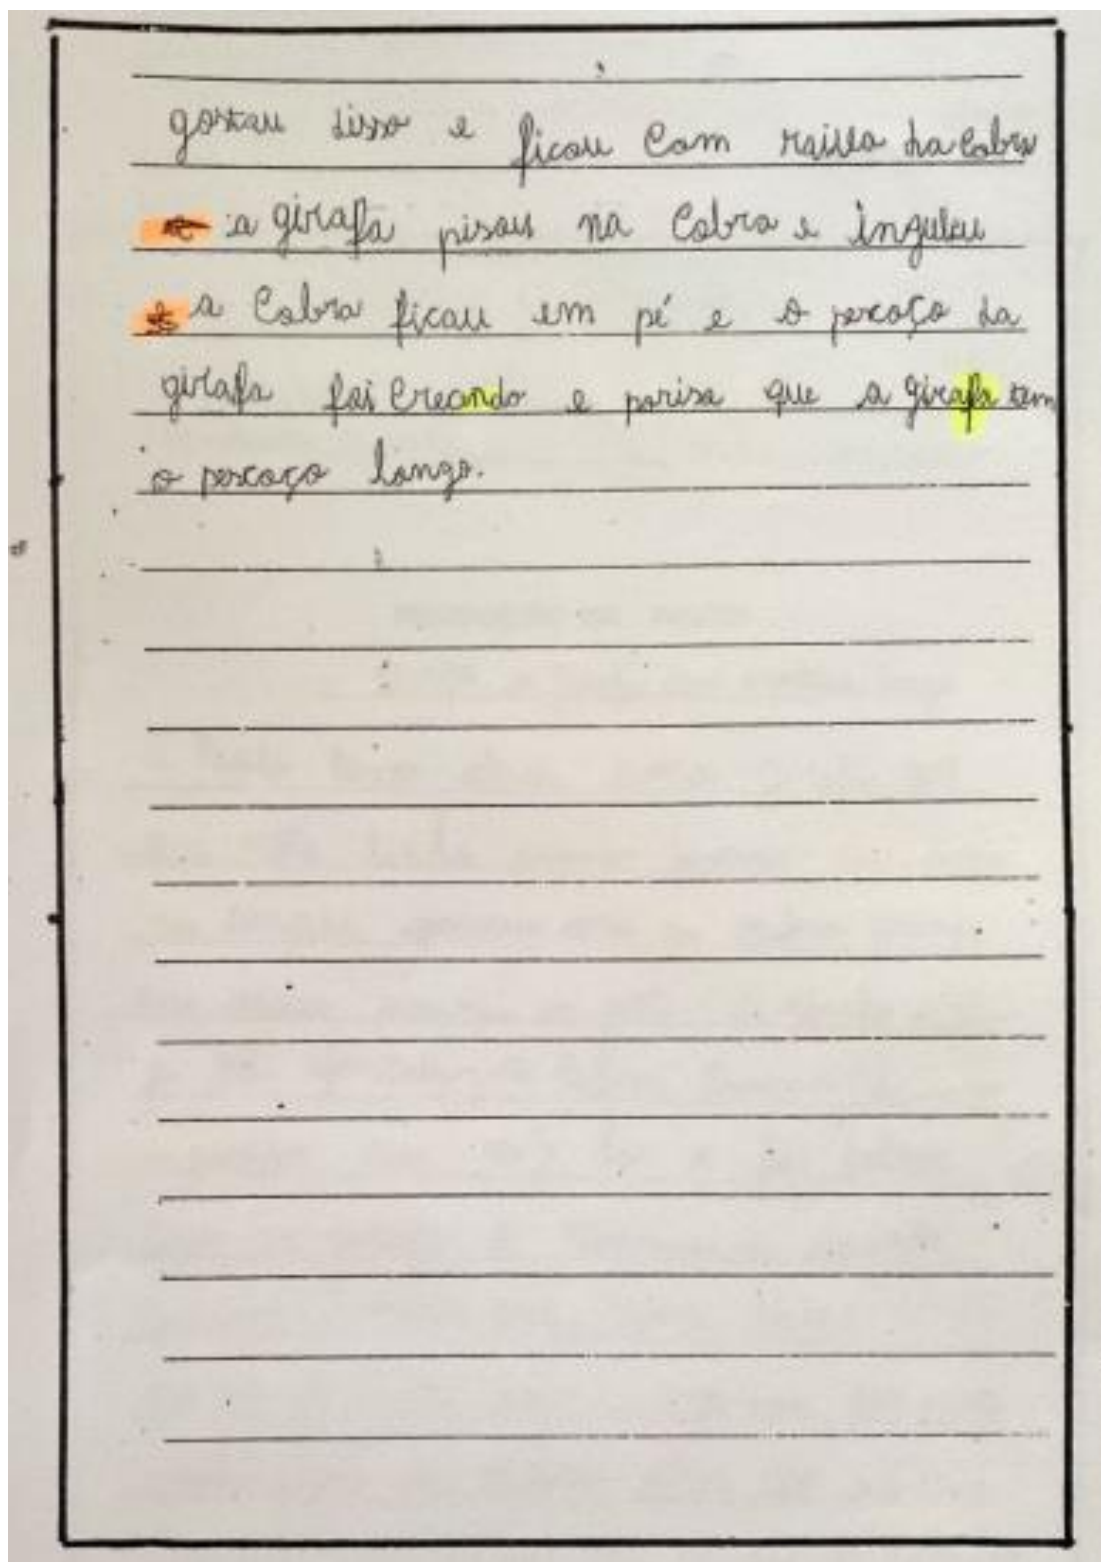 gostou disso e ficou com raiva da cobra
a girafa pisou na cobra e inguliu
a cobra ficou em pé e o pescoço da
girafa foi creando e poriso que a girafa tem
o pescoço longo.